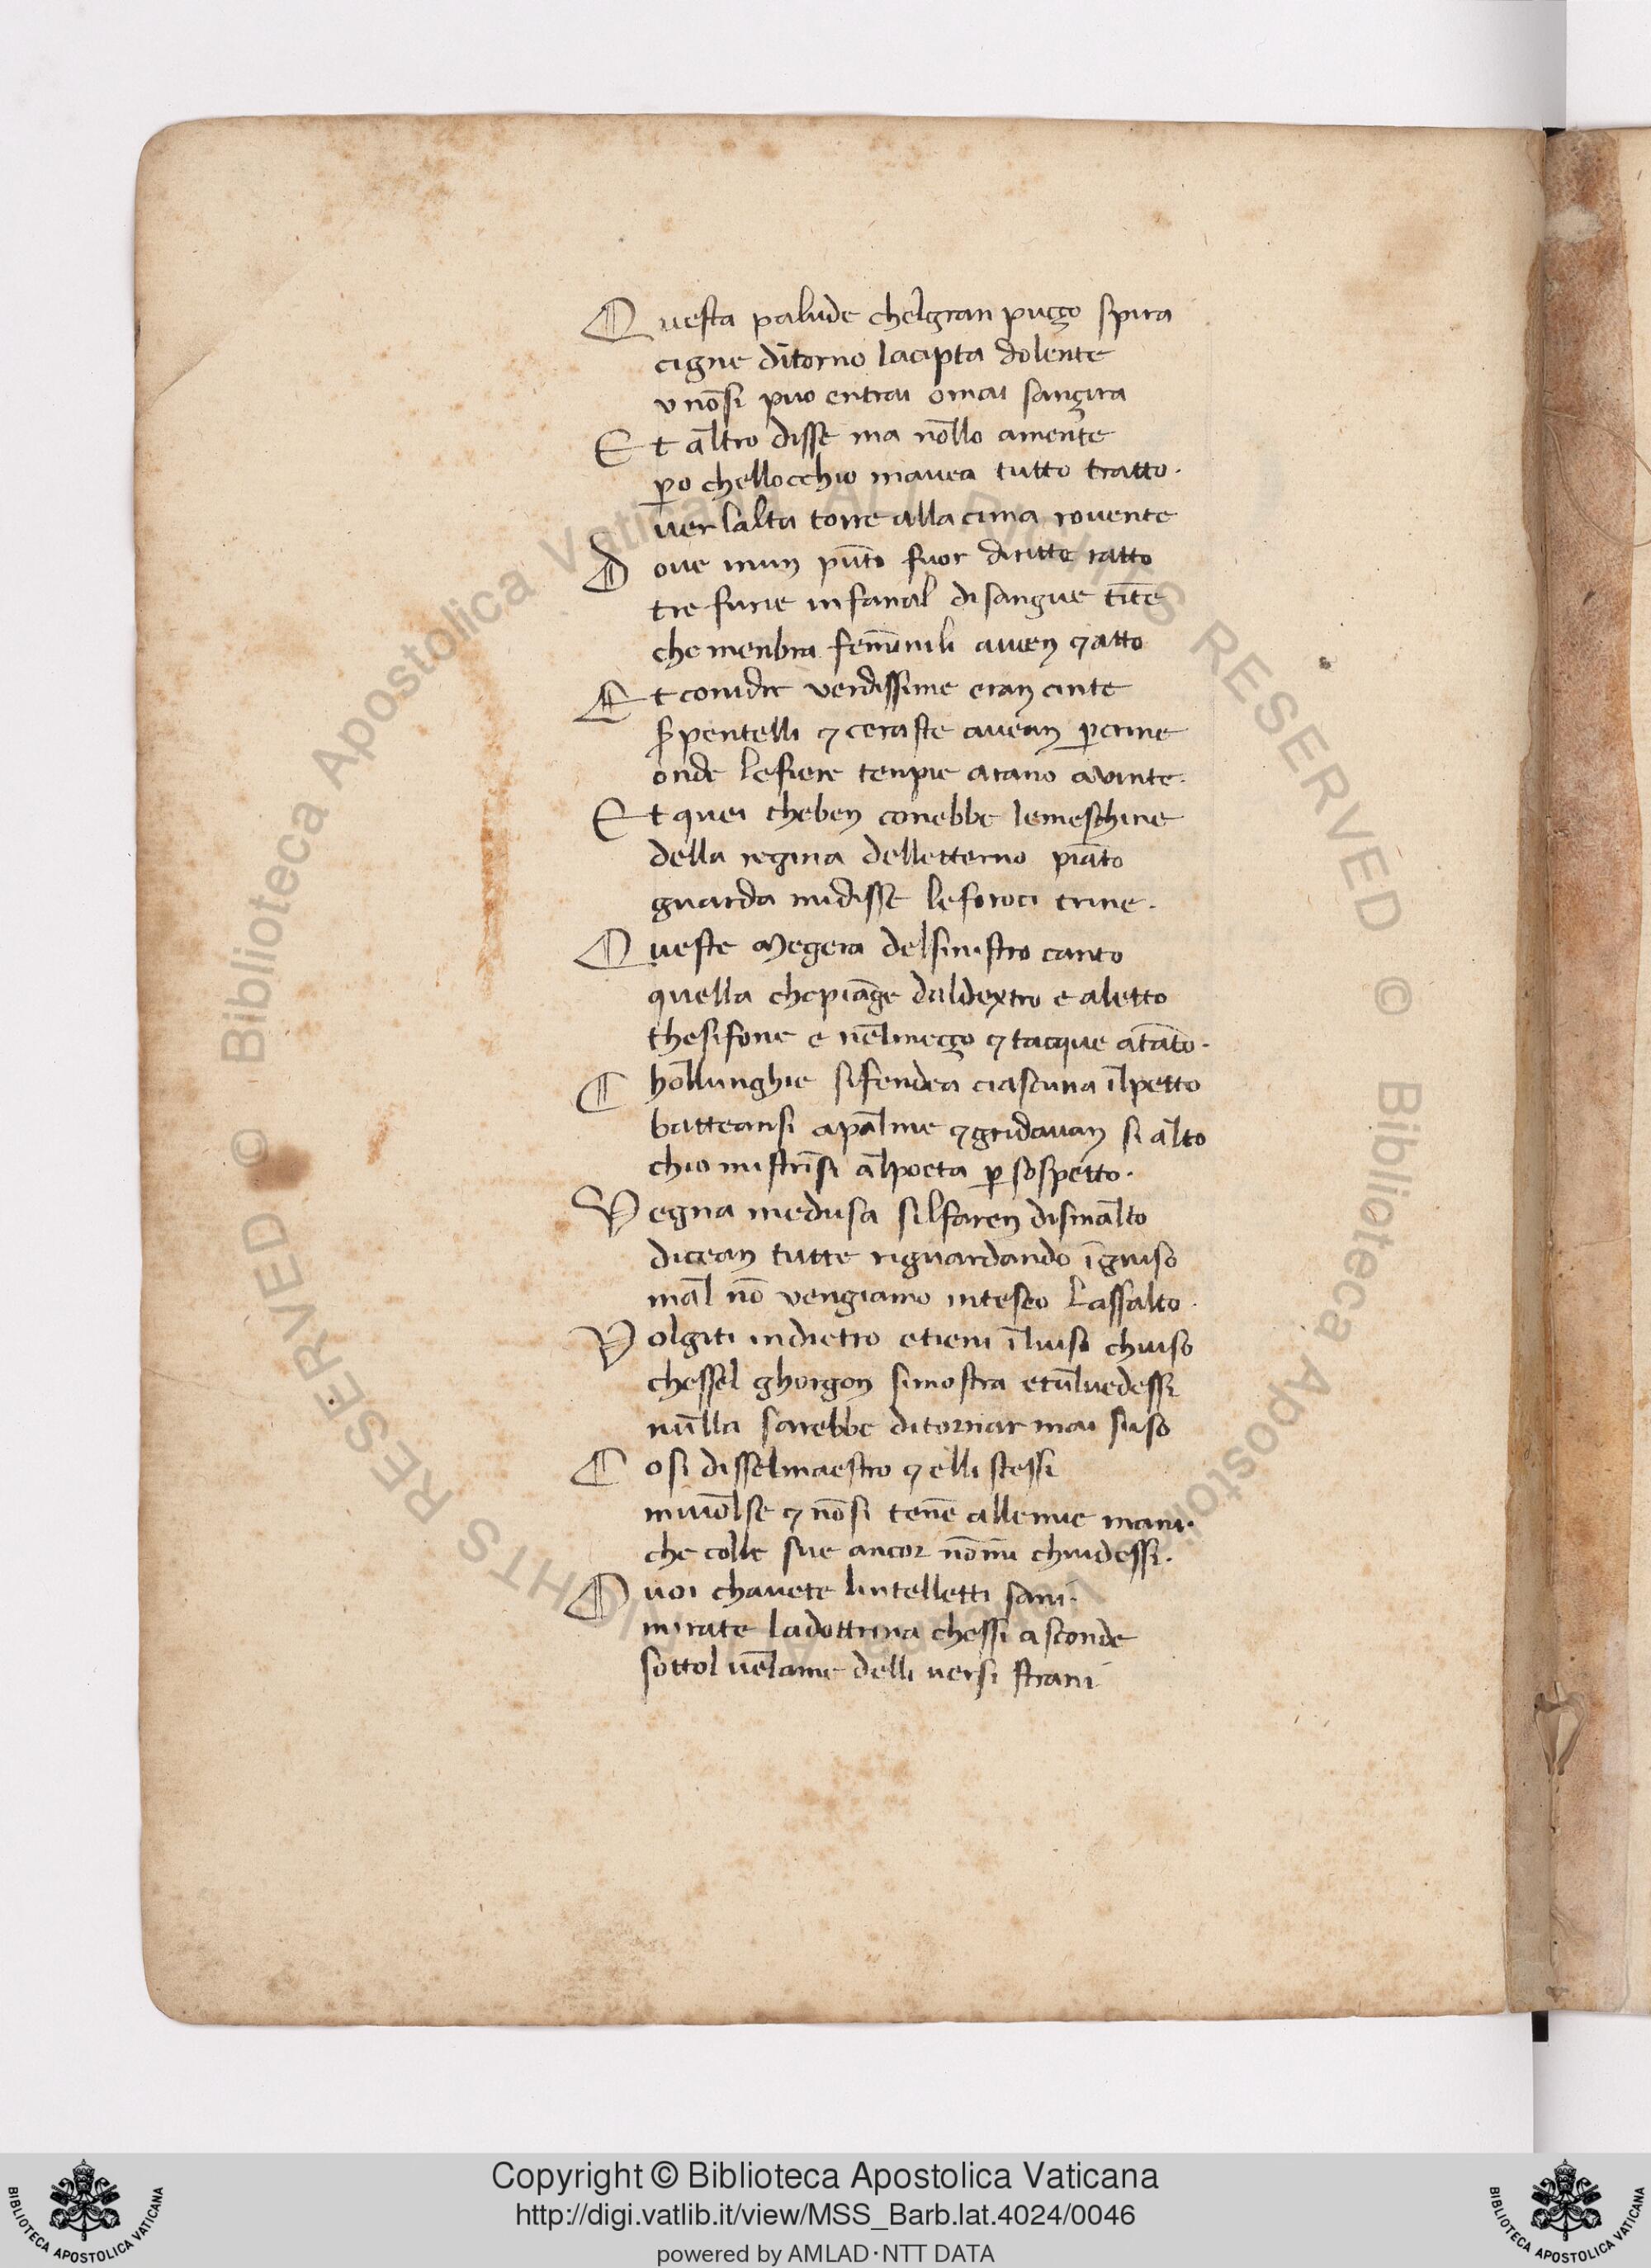 Questa palude chelgran puçço spira
cigne ditorno lacipta dolente
v nōsi puo entrai omai sançira
Et altro disse ma nollo amente
ꝑo chellocchio mauea tutto tratto.
uer lalta torre alla cima rouente
Doue inun pūto fuor diritte ratto
tre furie infanal disangue tīte
che menbra feminili auien ⁊ atto
Et conidre verdissime eran cinte
s̄pentelli ⁊ ceraste auean ꝑcrine
onde lefiere tenpie arano avinte.
Et quei cheben conebbe lemeschine
della regina delletterno piāto
guarda midisse leferoci erine.
Queste Megera delsinistro canto
quella chepiāge daldextro e aletto
thesifone e nelmeçço ⁊ tacque atāto.
Chollunghie sifendea ciascuna ilpetto
batteansi apalme ⁊gridauan si alto
chio mistrīsi alpoeta ꝑ sospetto.
Vegna medusa silfaren dismalto
dicean tutte riguardando īgiuso
mal nō vengiamo inteseo lassalto.
Volgiti indietro etieni iluiso chiuso
chessel ghorgon simostra etuluedessi
nulla sarebbe ditornar mai suso
Cosi disselmaestro ⁊ elli stessi
miuolse ⁊ nōsi tenē allemie mani.
che colle sue ancor nōmi chiudessi.
O uoi chauete lintelletti sani.
mirate ladottrina chessi asconde
sottol uelame delli uersi strani
© Biblioteca Apostolica Vaticana ALL RIGHTS RESERVED © Biblioteca Apostolica Vaticana ALL RIGHTS RESERVED
Copyright © Biblioteca Apostolica Vaticana
http://digi.vatlib.it/view/MSS_Barb.lat.4024/0046
powered by AMLAD·NTT DATA
BIBLIOTECA APOSTOLICA VATICANA
BIBLIOTECA APOSTOLICA VATICANA